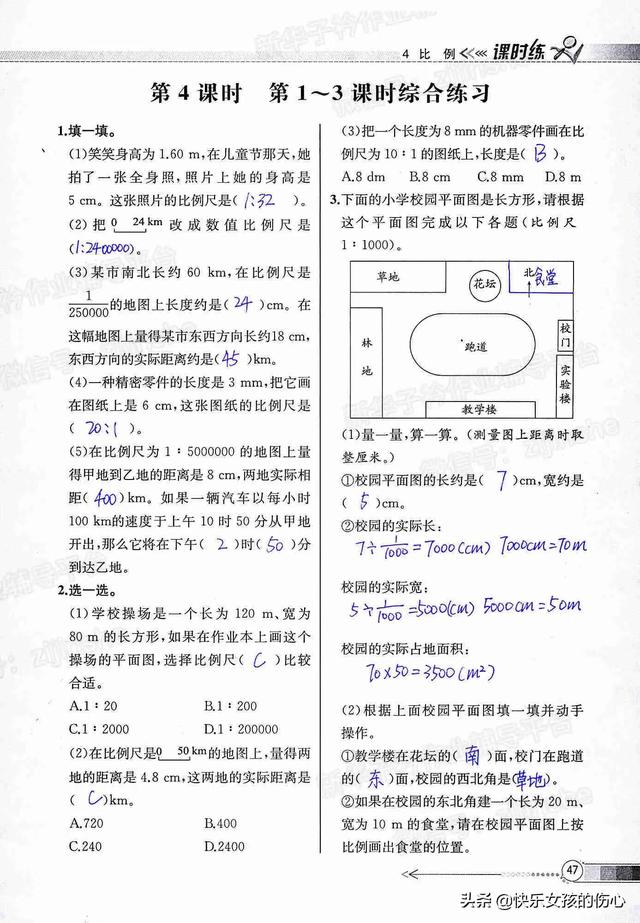 4 比 例 课时练
第4课时 第1～3课时综合练习
1.填一填。
(1)笑笑身高为1.60 m,在儿童节那天,她
拍了一张全身照,照片上她的身高是
5 cm。这张照片的比例尺是( 1:32 )。
(2)把 0 24 km 改成数值比例尺是
(1:2400000)。
(3)某市南北长约 60 km,在比例尺是
1/250000的地图上长度约是( 24 )cm。在
这幅地图上量得某市东西方向长约18 cm,
东西方向的实际距离约是( 45 )km。
(4)一种精密零件的长度是 3 mm,把它画
在图纸上是 6 cm,这张图纸的比例尺是
( 20:1 )。
(5)在比例尺为 1∶5000000 的地图上量
得甲地到乙地的距离是 8 cm,两地实际相
距( 400 )km。如果一辆汽车以每小时
100 km的速度于上午 10 时 50 分从甲地
开出,那么它将在下午( 2 )时( 50 )分
到达乙地。
2.选一选。
(1)学校操场是一个长为 120 m、宽为
80 m 的长方形,如果在作业本上画这个
操场的平面图,选择比例尺( C )比较
合适。
A.1∶20 B.1∶200
C.1∶2000 D.1∶200000
(2)在比例尺是 0 50 km 的地图上,量得两
地的距离是 4.8 cm,这两地的实际距离是
( C )km。
A.720 B.400
C.240 D.2400
(3)把一个长度为 8 mm 的机器零件画在比
例尺为 10∶1 的图纸上,长度是( B )。
A.8 dm B.8 cm C.8 mm D.8 m
3.下面的小学校园平面图是长方形,请根据
这个平面图完成以下各题(比例尺
1∶1000)。
草地
花坛
北 食堂
林地
跑道
校门
实验楼
教学楼
(1)量一量,算一算。(测量图上距离时取
整厘米。)
①校园平面图的长约是( 7 )cm,宽约是
( 5 )cm。
②校园的实际长:
7÷1/1000=7000(cm) 7000cm=70m
校园的实际宽:
5÷1/1000=5000(cm) 5000cm=50m
校园的实际占地面积:
70×50=3500(m²)
(2)根据上面校园平面图填一填并动手
操作。
①教学楼在花坛的( 南 )面,校门在跑道
的( 东 )面,校园的西北角是(草地)。
②如果在校园的东北角建一个长为 20 m、
宽为 10 m 的食堂,请在校园平面图上按
比例画出食堂的位置。
47
头条 @快乐女孩的伤心